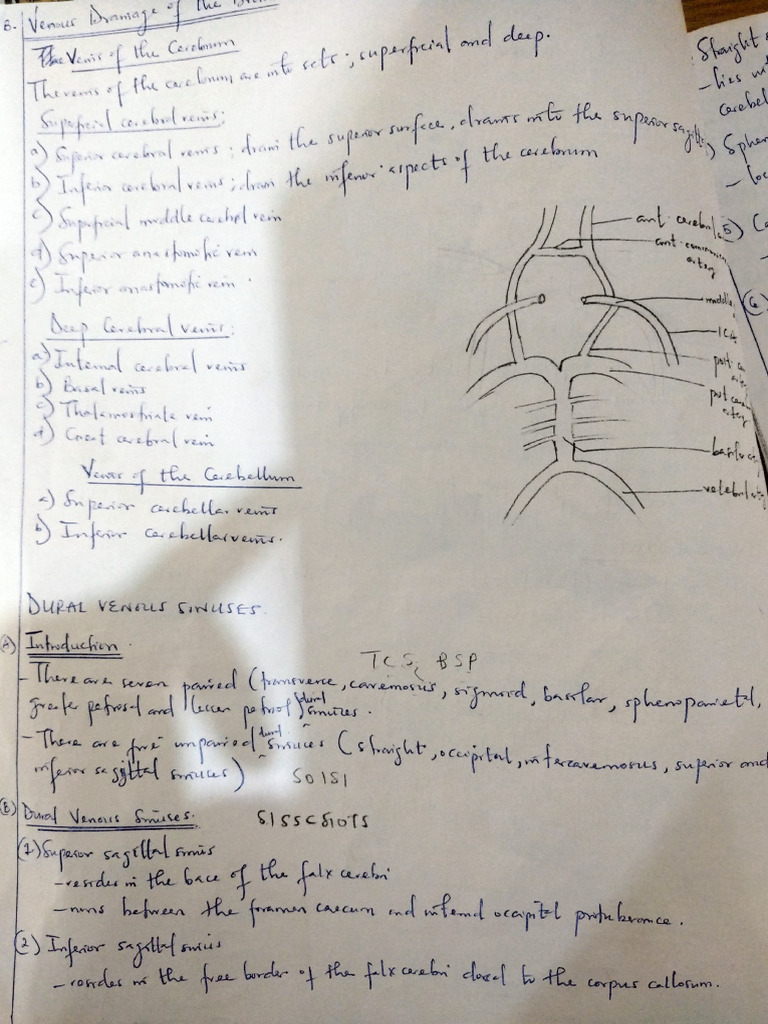 B. Venous Drainage of the Brain
The Veins of the Cerebrum
The veins of the cerebrum are into sets; superficial and deep.
Superficial cerebral veins:
a) Superior cerebral veins; drain the superior surface, drains into the superior sagittal
b) Inferior cerebral veins; drain the inferior aspects of the cerebrum
c) Superficial middle cerebral vein
d) Superior anastomotic vein
e) Inferior anastomotic vein.
Deep Cerebral veins:
a) Internal cerebral veins
b) Basal veins
c) Thalamostriate vein
d) Great cerebral vein
Veins of the Cerebellum
a) Superior cerebellar veins
b) Inferior cerebellar veins.
ant cerebral
ant communicating
artery
middle
ICA
post
post cerebral
artery
basilar
vertebral artery
DURAL VENOUS SINUSES.
(A) Introduction.
TCS, BSP
- There are seven paired (transverse, cavernosus, sigmoid, basilar, sphenoparietal,
greater petrosal and lesser petrosal) dural sinuses.
- There are five unpaired dural sinuses (straight, occipital, intercavernosus, superior and
inferior sagittal sinuses)
SOISI
(B) Dural Venous Sinuses.
SISSCSIOTS
(1) Superior sagittal sinus
- resides in the base of the falx cerebri
- runs between the foramen caecum and internal occipital protuberance.
(2) Inferior sagittal sinus
- resides in the free border of the falx cerebri closed to the corpus callosum.
Straight
- lies
cerebel
Sphen
- loc
5)
(6)